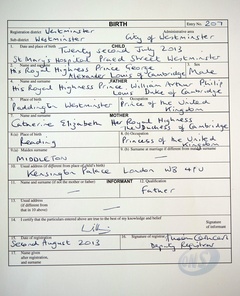 BIRTH
Entry No. 207
Registration district Westminster Administrative area
Sub-district Westminster City of Westminster
CHILD
1. Date and place of birth
Twenty second July 2013
St Mary's Hospital Praed Street Westminster
2. Name and surname 3. Sex
His Royal Highness Prince George
Alexander Louis of Cambridge Male
FATHER
4. Name and surname
His Royal Highness Prince William Arthur Philip
Louis Duke of Cambridge
5. Place of birth 6. Occupation
Paddington Westminster Prince of the United
Kingdom
MOTHER
7. Name and surname
Catherine Elizabeth Her Royal Highness
The Duchess of Cambridge
8. Place of birth 8.(b) Occupation
Reading Princess of the United
Kingdom
9.(a) Maiden surname 9.(b) Surname at marriage if different from maiden surname
MIDDLETON
10. Usual address (if different from place of child's birth)
Kensington Palace London W8 4PU
INFORMANT
11. Name and surname (if not the mother or father) 12. Qualification
Father
13. Usual address
(if different from
that in 10 above)
14. I certify that the particulars entered above are true to the best of my knowledge and belief
Signature
of informant
15. Date of registration 16. Signature
Second August 2013 of registrar
Deputy Registrar
17. Name given
after registration,
and surname